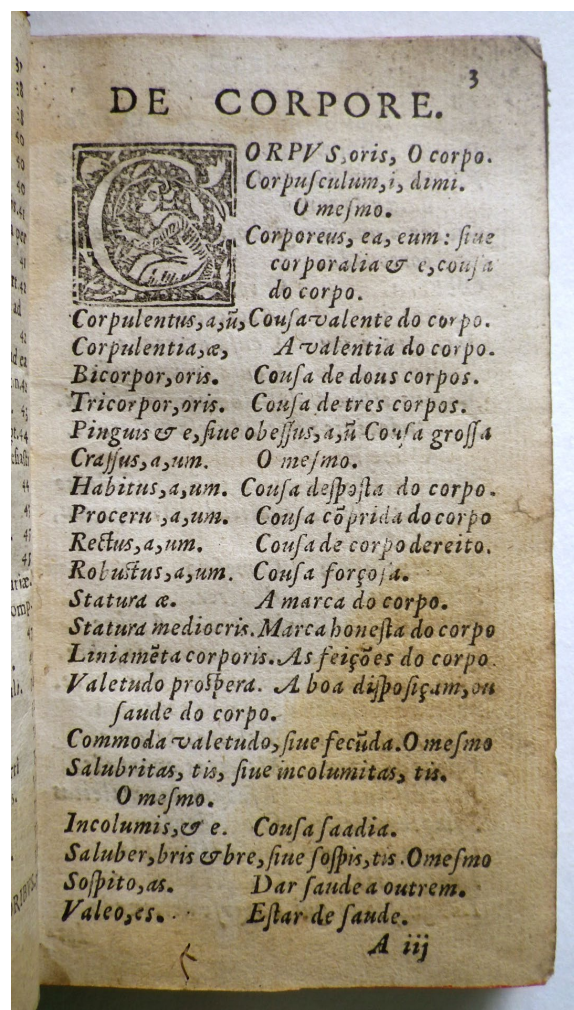 3
DE CORPORE.
CORPVS, oris, O corpo.
Corpuſculum, i, dimi.
O meſmo.
Corporeus, ea, eum: ſiue
corporalia & e, couſa
do corpo.
Corpulentus, a, ũ, Couſa valente do corpo.
Corpulentia, æ, A valentia do corpo.
Bicorpor, oris. Couſa de dous corpos.
Tricorpor, oris. Couſa de tres corpos.
Pinguis & e, ſiue obeſſus, a, ũ Couſa groſſa
Craſſus, a, um. O meſmo.
Habitus, a, um. Couſa deſpoſta do corpo.
Proceru , a, um. Couſa cõprida do corpo
Rectus, a, um. Couſa de corpo dereito.
Robuſtus, a, um. Couſa forçoſa.
Statura æ. A marca do corpo.
Statura mediocris. Marca honeſta do corpo
Liniamẽta corporis. As feições do corpo.
Valetudo proſpera. A boa diſpoſiçam, ou
ſaude do corpo.
Commoda valetudo, ſiue fecũda. O meſmo
Salubritas, tis, ſiue incolumitas, tis.
O meſmo.
Incolumis, & e. Couſa ſaadia.
Saluber, bris & bre, ſiue ſoſpis, tis. O meſmo
Soſpito, as. Dar ſaude a outrem.
Valeo, es. Eſtar de ſaude.
A iij